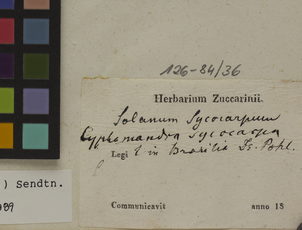 126-84/36
Herbarium Zuccarinii.
Solanum Sycocarpum
Cyphomandra sycocarpa
Legi t in Brasilia Dr. Pohl.
Communicavit anno 18
) Sendtn.
989